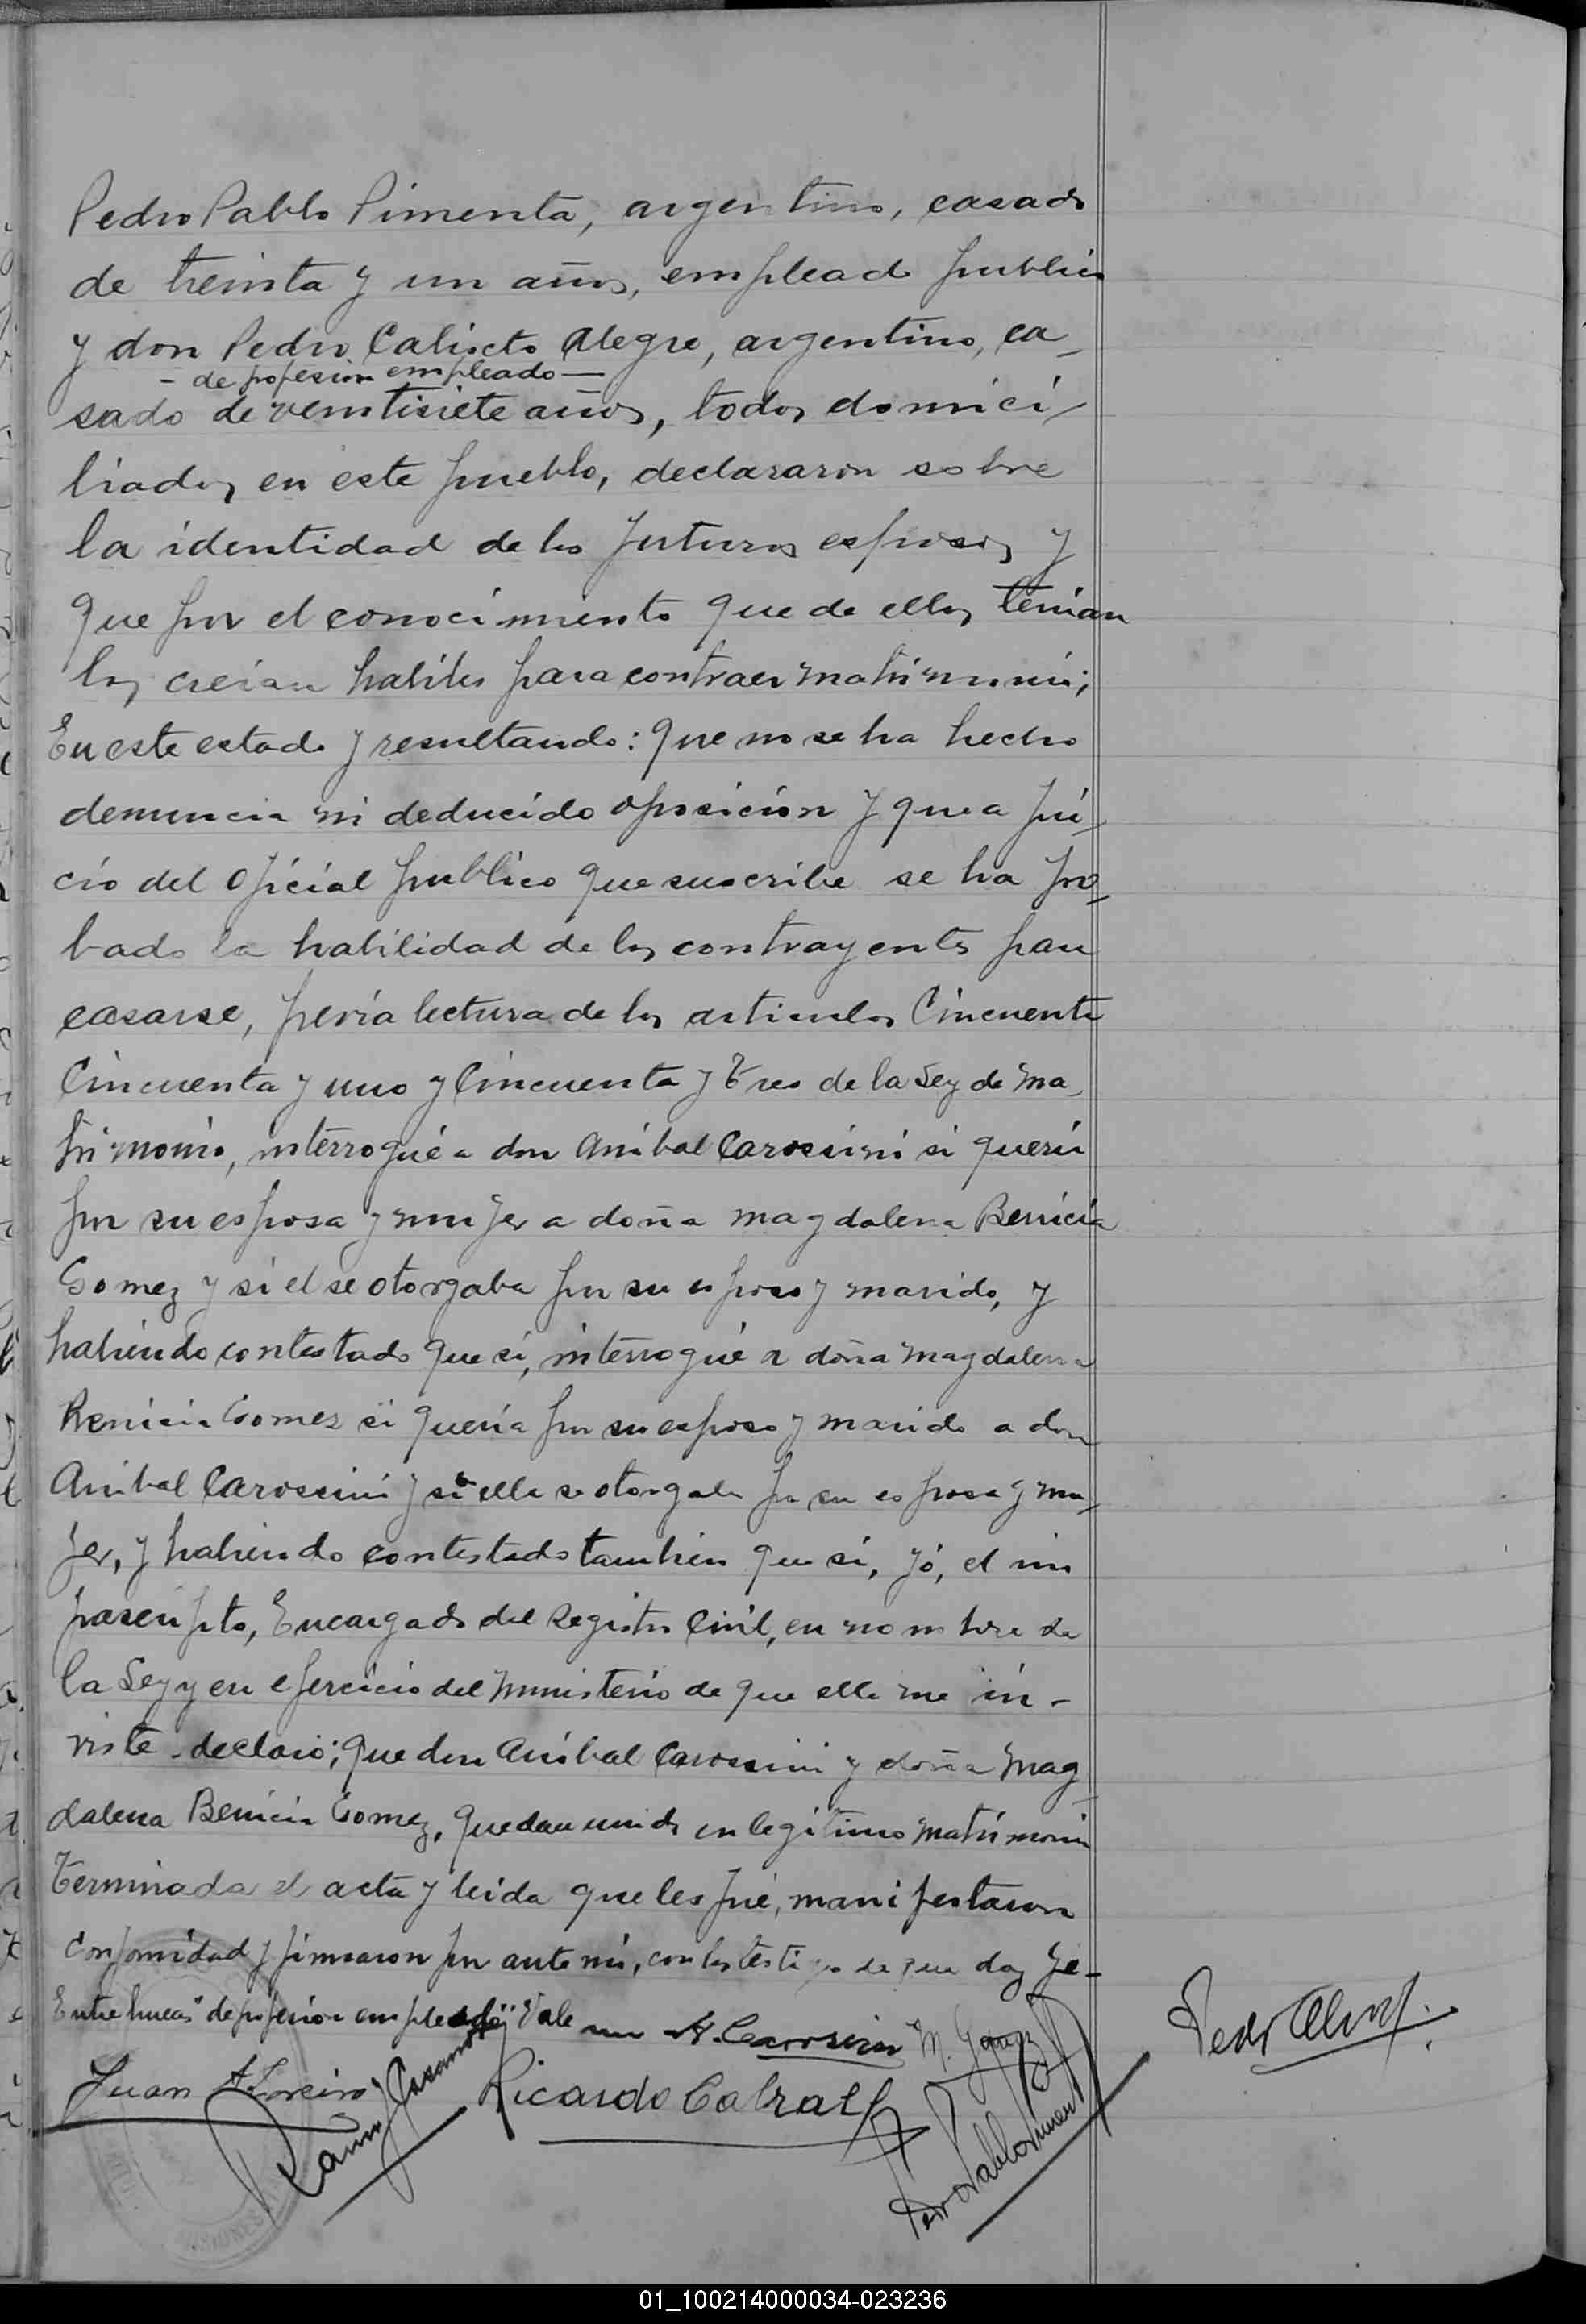 Pedro Pablo Pimenta, argentino, casado
de treinta y un años, empleado publico
y don Pedro Calixto Alegre, argentino, ca-
- de profesion empleado -
sado de veintisiete años, todos domici-
liados en este pueblo, declararon sobre
la identidad de los futuros esposos y
que por el conocimiento que de ellos tenian
los creian habiles para contraer matrimonio;
En este estado y resultando: que no se ha hecho
denuncia ni deducido oposición y que a jui-
cio del oficial publico que suscribe se ha pro-
bado la habilidad de los contrayentes para
casarse, previa lectura de los articulos Cincuenta
Cincuenta y uno y Cincuenta y Tres de la Ley de Ma-
trimonio, interrogué a don Anibal Carossini si queria
por su esposa y mujer a doña Magdalena Benicia
Gomez y si el se otorgaba por su esposo y marido, y
habiendo contestado que si, interrogué a doña Magdalena
Benicia Gomez si queria por su esposo y marido a don
Anibal Carossini y si ella se otorgaba por su esposa y mu-
jer, y habiendo contestado tambien que si, yó, el in
frascripto, Encargado del Registro Civil, en nombre de
la Ley y en ejercicio del ministerio de que ella me in-
viste declaró; que don Anibal Carossini y doña Mag-
dalena Benicia Gomez, quedan unidos en legitimo matrimonio
Terminada el acta y leida que les fué, manifestaron
conformidad y firmaron por ante mi, con los testigos de que doy fe-
Entre lineas "de profesion empleado" Vale
A. Carossini M. Gomez
Pedro Alegre
Juan A.
Ramon Ricardo Cabral
Pedro Pablo Pimenta
MISIONES
01_100214000034-023236